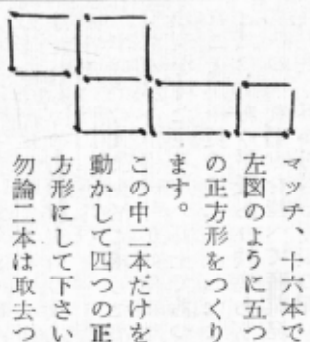 マッチ、十六本で
左図のように五つ
の正方形をつくり
ます。
この中二本だけを
動かして四つの正
方形にして下さい
勿論二本は取去つ